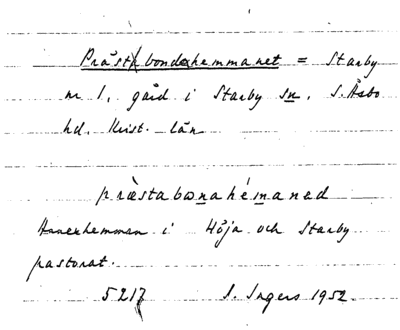 Prästbondehemmanet = Starby
nr 1, gård i Starby sn, S. Åsbo
hd. Krist. län
prästabonahémaned
Annexhemman i Höja och Starby
pastorat.
5217 I. Ingers 1952.